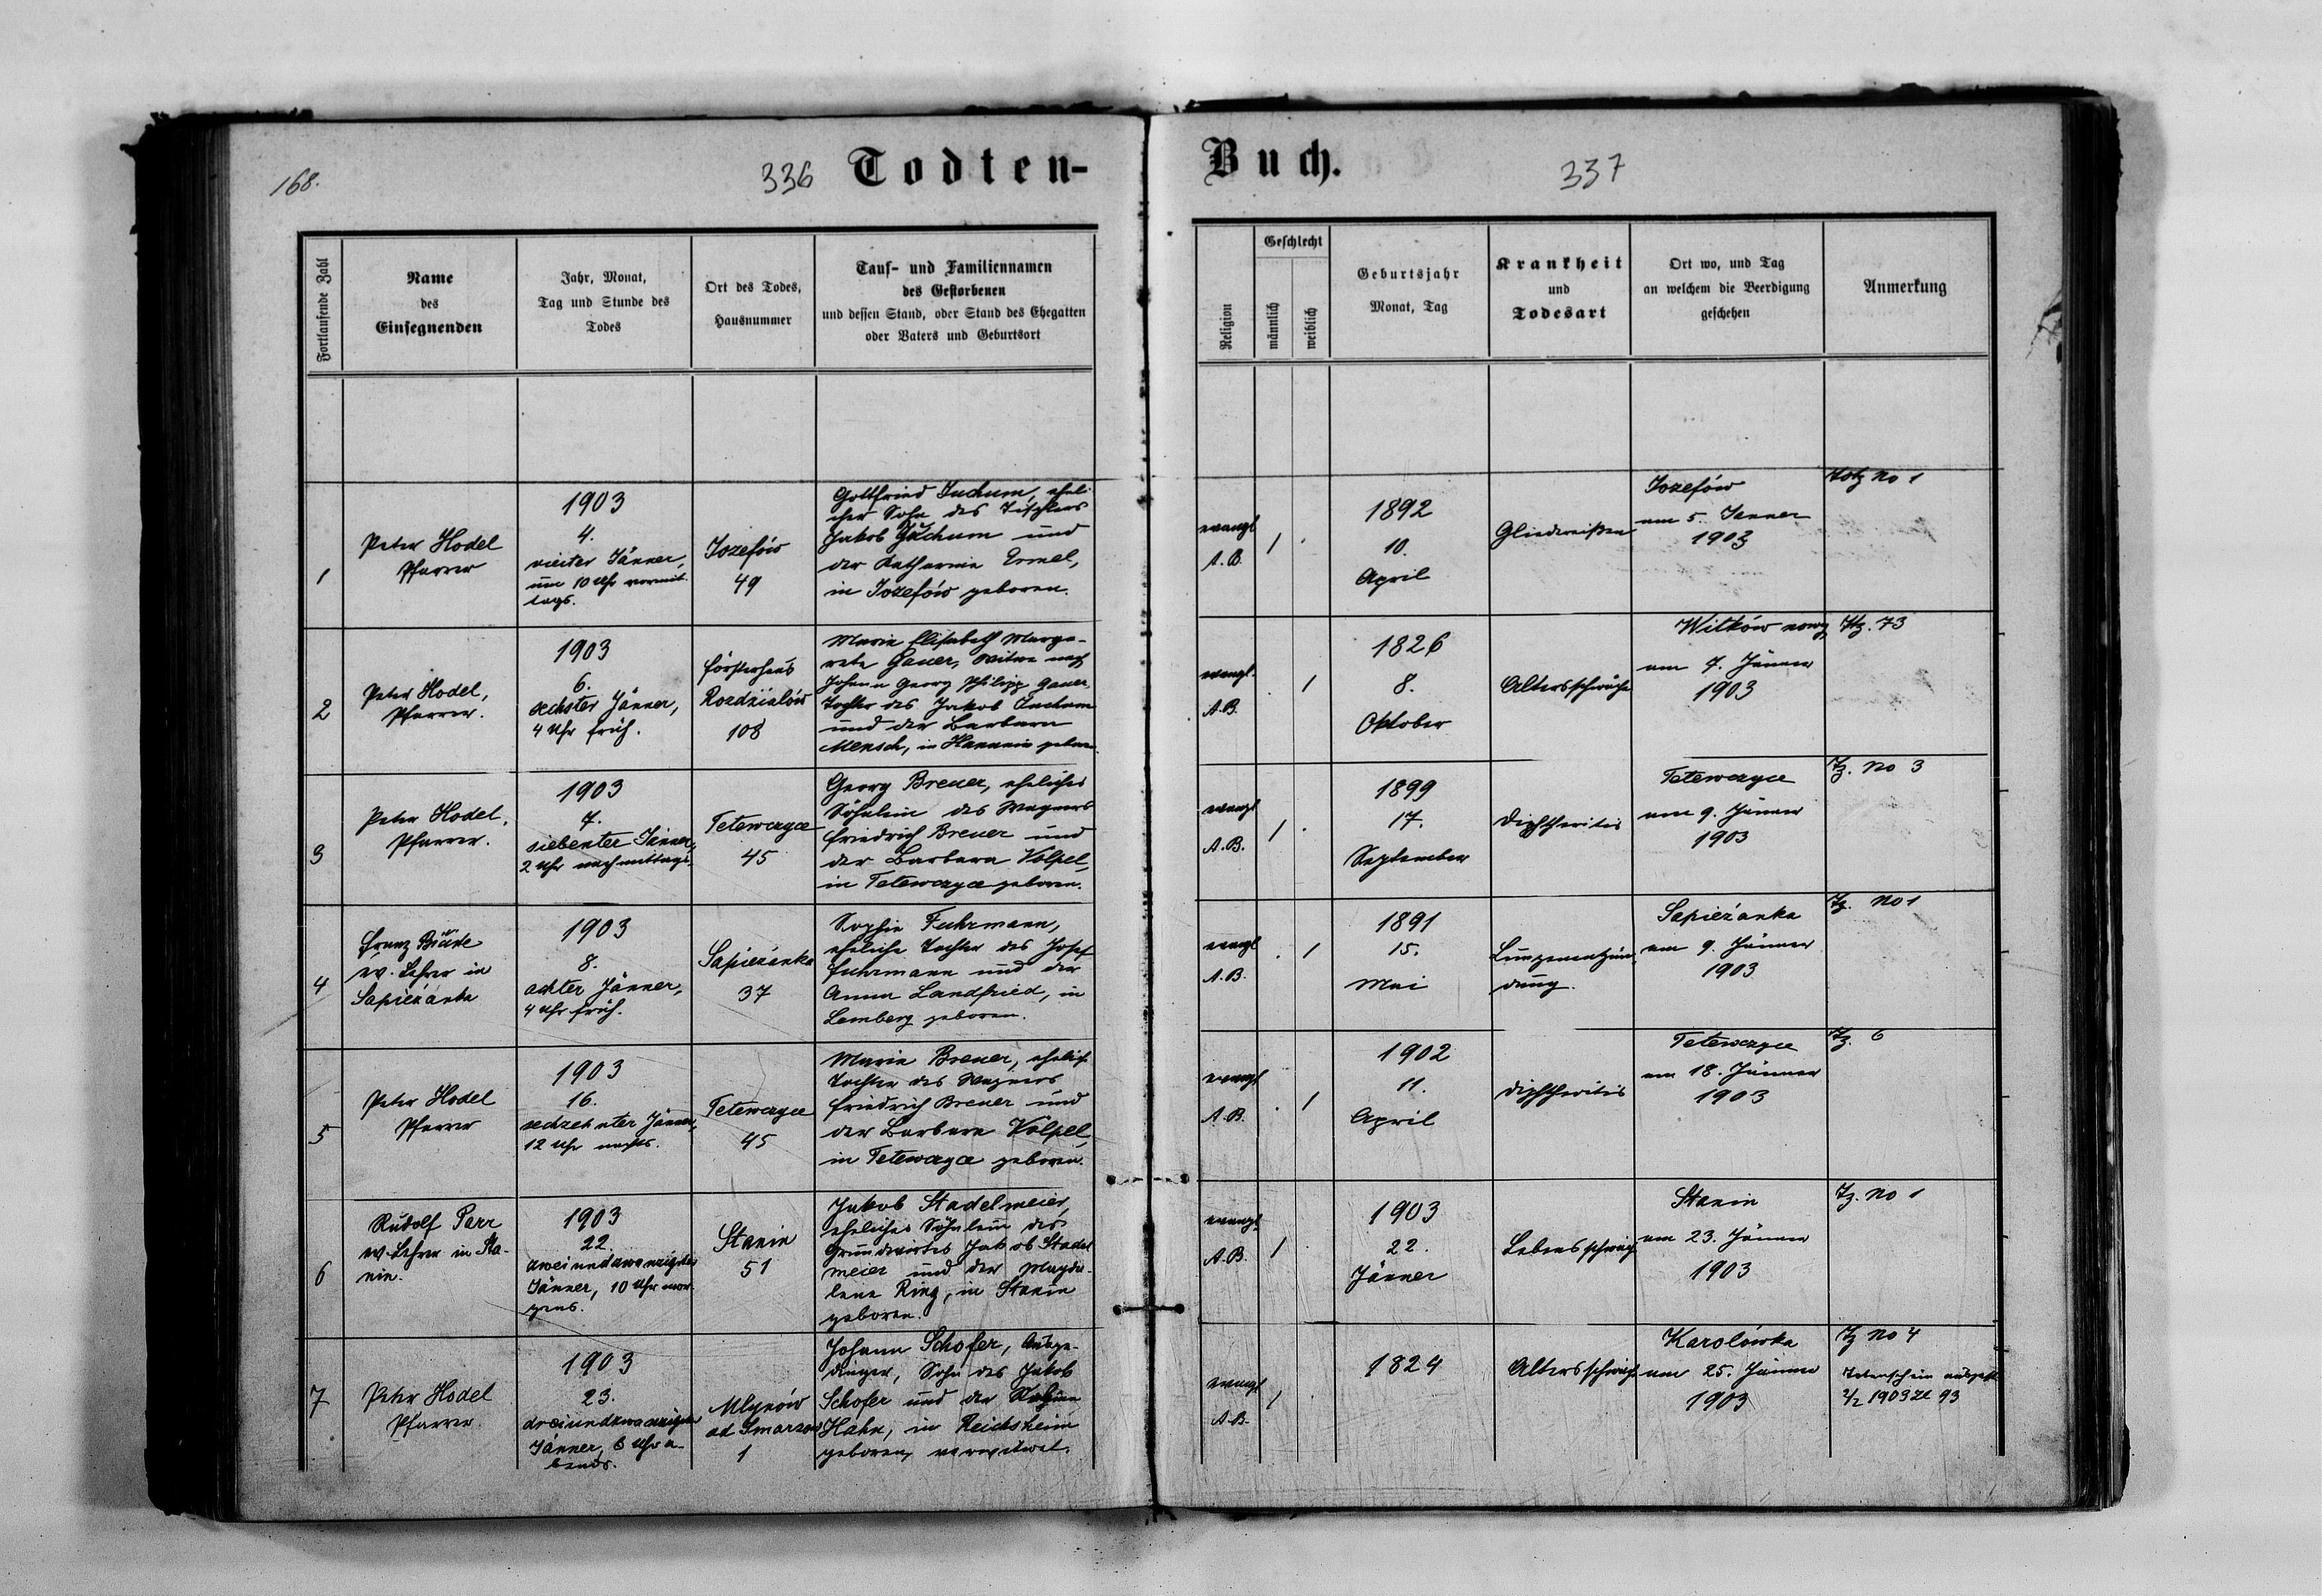 168.
336 Todten-
Fortlaufende Zahl
Name
des
Einsegnenden
Jahr, Monat,
Tag und Stunde des
Todes
Ort des Todes,
Hausnummer
Tauf- und Familiennamen
des Gestorbenen
und dessen Stand, oder Stand des Ehegatten
oder Vaters und Geburtsort
1
Peter Hodel
Pfarrer
1903
4.
vierter Jänner,
um 10 Uhr vormit-
tags.
Jozefów
49
Gottfried Juchum, eheli-
cher Sohn des Tischlers
Jakob Juchum und
der Katharina Ermel,
in Jozefów geboren.
2
Peter Hodel,
Pfarrer.
1903
6.
sechster Jänner,
4 Uhr früh.
Försterhaus
Rozdzialów
108
Marie Elisabeth Marga-
rete Gauer, Witwe nach
Johann Georg Philipp Gauer,
Tochter des Jakob Juchum
und der Barbara
Mensch, in Hanunin geboren.
3
Peter Hodel,
Pfarrer.
1903
7.
siebenter Jänner,
2 Uhr nachmittags.
Tetewczyce
45
Georg Breuer, eheliches
Söhnlein des Wagners
Friedrich Breuer und
der Barbara Volpel,
in Tetewczyce geboren.
4
Franz
ev. Lehrer in
Sapieżanka
1903
8.
achter Jänner,
4 Uhr früh.
Sapieżanka
37
Sophie Fuhrmann,
eheliche Tochter des Josef
Fuhrmann und der
Anna Landfried, in
Lemberg geboren.
5
Peter Hodel
Pfarrer
1903
16.
sechzehnter Jänner,
12 Uhr nachts.
Tetewczyce
45
Marie Breuer, ehelich
Tochter des Wagners
Friedrich Breuer und
der Barbara Volpel,
in Tetewczyce geboren.
6
Rudolf Parr
ev. Lehrer in Sta-
nin.
1903
22.
zweiundzwanzigster
Jänner, 10 Uhr mor-
gens.
Stanin
51
Jakob Stadelmeier,
eheliches Söhnlein des
Grundwirtes Jakob Stadel
meier und der Magda-
lena Ring, in Stanin
geboren.
7
Peter Hodel
Pfarrer.
1903
23.
dreiundzwanzigster
Jänner, 6 Uhr a-
bends.
Mlynów
ad Smarzów
1
Johann Schofer, Ausge-
dinger, Sohn des Jakob
Schofer und der
Hahn, in Reichsheim
geboren, verwitwet.
Buch. 337
Religion
Geschlecht
männlich
weiblich
Geburtsjahr
Monat, Tag
Krankheit
und
Todesart
Ort wo, und Tag
an welchem die Beerdigung
geschehen
Anmerkung
evangl
A.B.
1892
10.
April
Gliederreißen
Jozefów
am 5. Jänner
1903
No 1
evangl.
A.B.
1826
8.
Oktober
Altersschwäche
Witków nowy
am 7. Jänner
1903
73
evangl
A.B.
1899
17.
September
Diphtheritis
Tetewczyce
am 9. Jänner
1903
Tz. No 3
evangl
A.B.
1891
15.
Mai
Lungenentzün-
dung.
Sapieżanka
am 9. Jänner
1903
Tz. No 1
evangl
A.B.
1902
11.
April
Diphtheritis
Tetewczyce
am 18. Jänner
1903
Tz. 6
evangl.
A.B.
1903
22.
Jänner
Lebensschwäche
Stanin
am 23. Jänner
1903
Tz. No 1
evangl
A.B.
1824
Altersschwäche
Karolówka
am 25. Jänner
1903
Tz No 4
Totenschein ausgest.
1903 Zl 93